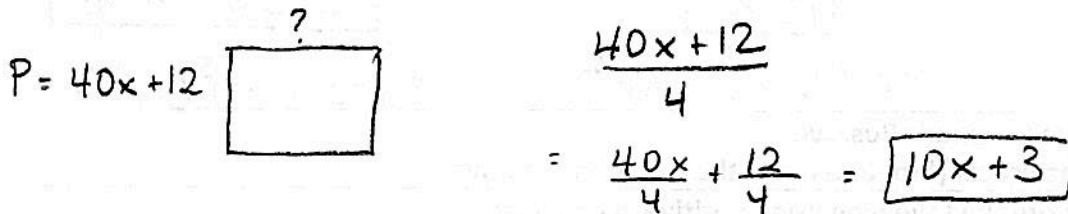 ?
P = 40x + 12
40x + 12
4
= 40x/4 + 12/4 = 10x + 3